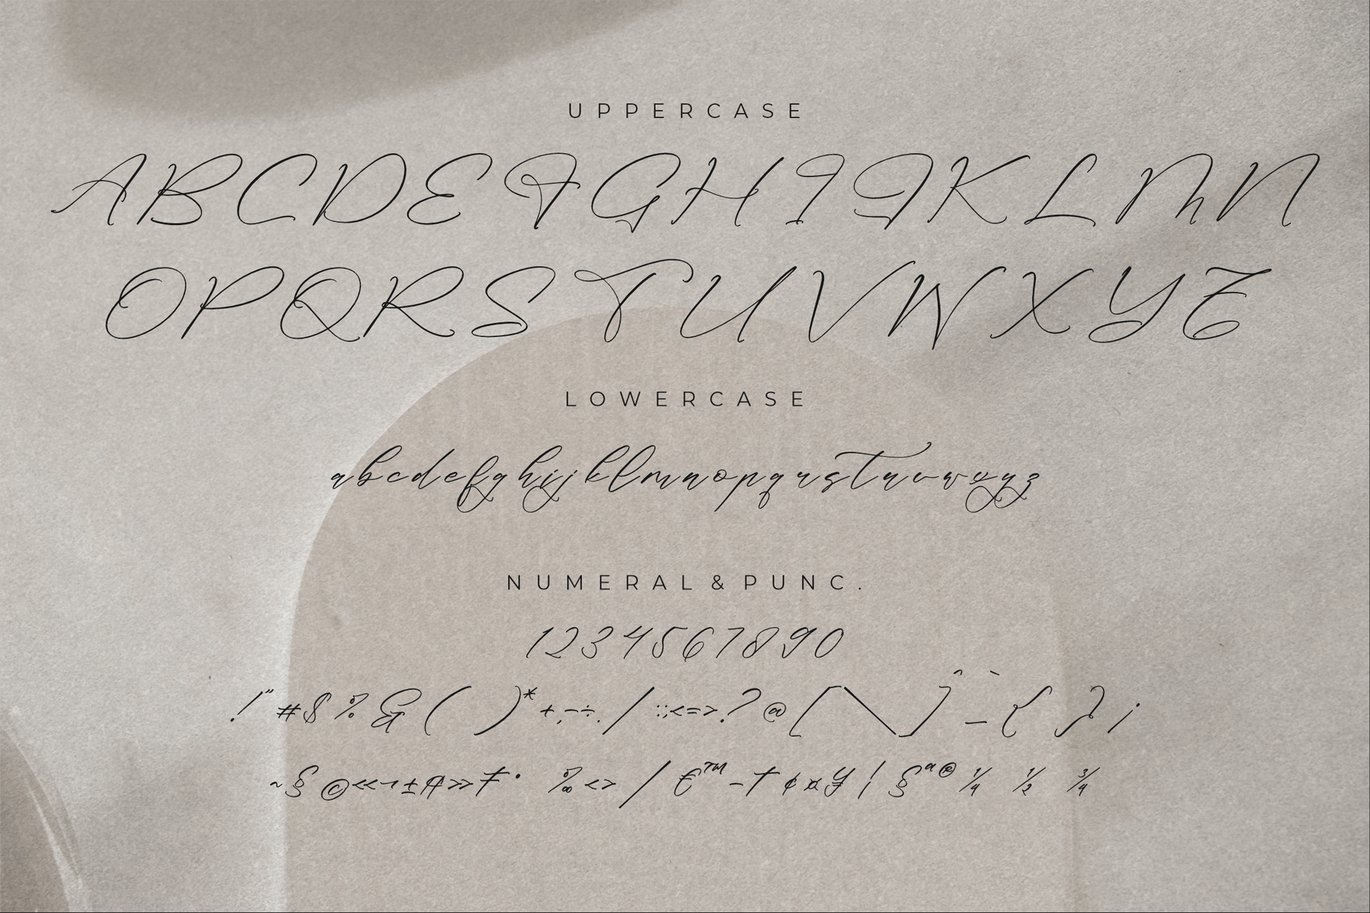 UPPERCASE
ABCDEFGHIJKLMN
OPQRSTUVWXYZ
LOWERCASE
abcdefghijklmnopqrstuvwxyz
NUMERAL & PUNC.
1234567890
!"#$%&()*+,-÷./:;<=>.?@[\]^_¯{}¡
~§©«¬±₳»₣•‰<>/€™–†¢¤¥¦§ª®¼ ½ ¾